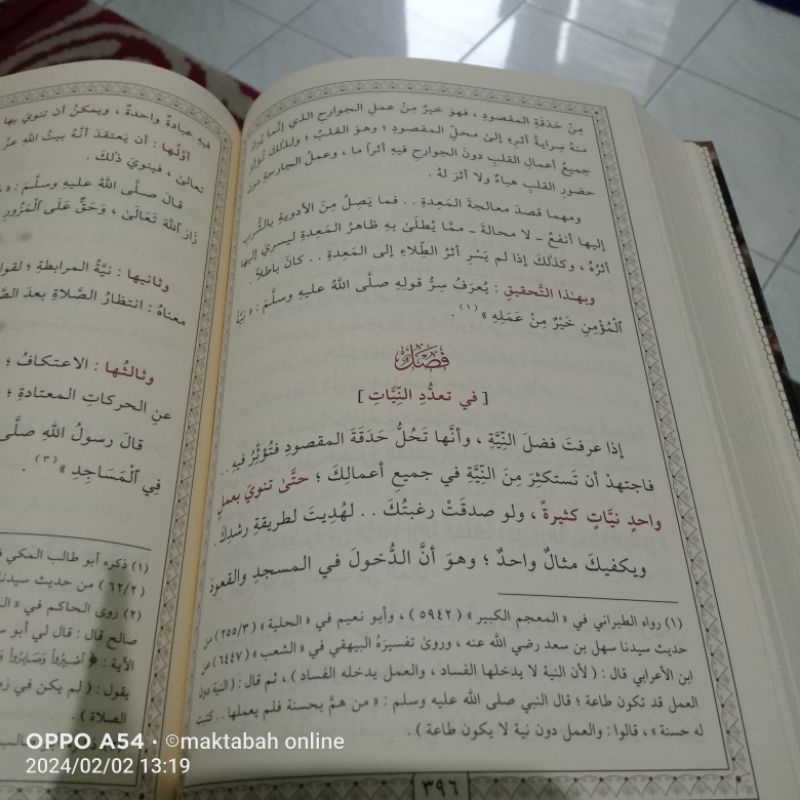 مِنْ حَدَقَةِ المقصودِ ، فهوَ خيرٌ مِنْ عملِ الجوارحِ الذي إنَّما يُرادُ
منهُ سِرايةُ أثرِهِ إلىٰ محلِّ المقصودِ ؛ وهوَ القلبُ ؛ ولذٰلكَ تُؤثِّرُ
جميعُ أعمالِ القلبِ دونَ الجوارحِ فيهِ أثراً ما ، وعملُ الجارحةِ دونَ
حضورِ القلبِ هباءٌ ولا أثرَ لهُ .
ومهما قصدَ معالجةَ المَعِدةِ . . فما يَصِلُ مِنَ الأدويةِ بالشُّربِ
إليها أنفعُ ـ لا محالةَ ـ ممَّا يُطلَىٰ بِهِ ظاهرُ المَعِدةِ ليسريَ إليها
أثرُهُ ، وكذٰلكَ إذا لم يَسْرِ أثرُ الطِّلاءِ إلى المَعِدةِ . . كانَ باطلاً .
وبهـٰذا التَّحقيقِ : يُعرَفُ سِرُّ قولِهِ صلَّى اللهُ عليهِ وسلَّمَ : « نِيَّةُ
ٱلْمُؤْمِنِ خَيْرٌ مِنْ عَمَلِهِ »(١) .
فَصْلٌ
[ في تعدُّدِ النِّيَّاتِ ]
إذا عرفتَ فضلَ النِّيَّةِ ، وأنَّها تَحُلُّ حَدَقَةَ المقصودِ فتُؤثِّرُ فيهِ . .
فاجتهدْ أن تَستكثِرَ مِنَ النِّيَّةِ في جميعِ أعمالِكَ ؛ حتَّىٰ تنويَ بعملٍ
واحدٍ نيَّاتٍ كثيرةً ، ولو صدقَتْ رغبتُكَ . . لهُدِيتَ لطريقةِ رشدِكَ .
ويكفيكَ مثالٌ واحدٌ ؛ وهوَ أنَّ الدُّخولَ في المسجدِ والقعودَ
(١) رواه الطبراني في « المعجم الكبير » ( ٥٩٤٢ ) ، وأبو نعيم في « الحلية » ( ٢٥٥/٣ ) من
حديث سيدنا سهل بن سعد رضي الله عنه ، وروىٰ تفسيرَهُ البيهقي في « الشعب » ( ٦٤٤٧ ) عن
ابن الأعرابي قال : ( لأن النية لا يدخلها الفساد ، والعمل يدخله الفساد ) ، ثم قال : ( النية دون
العمل قد تكون طاعة ؛ قال النبي صلى الله عليه وسلم : « من همَّ بحسنة فلم يعملها . . كتبت
له حسنة » ، قالوا : والعمل دون نية لا يكون طاعة ) .
٣٩٦
فيهِ عبادةٌ واحدةٌ ، ويمكنُ أن تنويَ بها
أوَّلُها : أن يَعتقدَ أنَّهُ بيتُ اللهِ عزَّ
تعالىٰ ، فينويَ ذٰلكَ .
قالَ صلَّى اللهُ عليهِ وسلَّمَ :
زَارَ ٱللهَ تَعَالَىٰ ، وَحَقٌّ عَلَى ٱلْمَزُورِ
وثانيها : نيَّةُ المرابطةِ ؛ لقول
معناهُ : انتظارُ الصَّلاةِ بعدَ
وثالثُها : الاعتكافُ ؛
عنِ الحركاتِ المعتادةِ ؛
قالَ رسولُ اللهِ صلَّى
فِي ٱلْمَسَاجِدِ »(٣) .
(١) ذكره أبو طالب المكي
( ٦٢/٢ ) من حديث سيدنا
(٢) روى الحاكم في «
صالح قال : قال لي أبو
الآية : ﴿ ٱصْبِرُوا۟ وَصَابِرُوا۟
يقول : ( لم يكن في
الصلاة ) .
OPPO A54 · ©maktabah online
2024/02/02 13:19